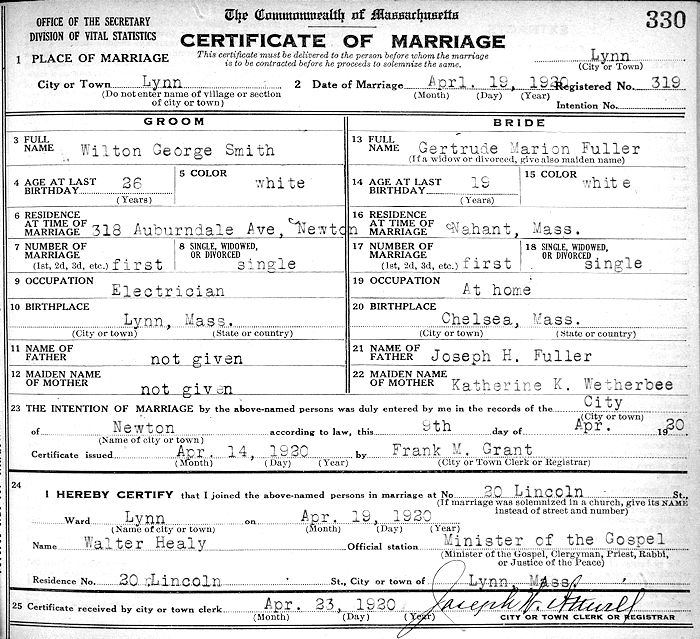 OFFICE OF THE SECRETARY
DIVISION OF VITAL STATISTICS
The Commonwealth of Massachusetts
330
CERTIFICATE OF MARRIAGE
This certificate must be delivered to the person before whom the marriage
is to be contracted before he proceeds to solemnize the same.
1 PLACE OF MARRIAGE
Lynn
(City or Town)
City or Town Lynn
(Do not enter name of village or section
of city or town)
2 Date of Marriage Aprl. 19, 1920
(Month) (Day) (Year)
Registered No. 319
Intention No.
GROOM
3 FULL NAME Wilton George Smith
4 AGE AT LAST BIRTHDAY 26
(Years)
5 COLOR white
6 RESIDENCE AT TIME OF MARRIAGE 318 Auburndale Ave, Newton
7 NUMBER OF MARRIAGE
(1st, 2d, 3d, etc.) first
8 SINGLE, WIDOWED, OR DIVORCED single
9 OCCUPATION
Electrician
10 BIRTHPLACE
Lynn, Mass.
(City or town) (State or country)
11 NAME OF FATHER not given
12 MAIDEN NAME OF MOTHER not given
BRIDE
13 FULL NAME Gertrude Marion Fuller
(If a widow or divorced, give also maiden name)
14 AGE AT LAST BIRTHDAY 19
(Years)
15 COLOR white
16 RESIDENCE AT TIME OF MARRIAGE Nahant, Mass.
17 NUMBER OF MARRIAGE
(1st, 2d, 3d, etc.) first
18 SINGLE, WIDOWED, OR DIVORCED single
19 OCCUPATION
At home
20 BIRTHPLACE
Chelsea, Mass.
(City or town) (State or country)
21 NAME OF FATHER Joseph H. Fuller
22 MAIDEN NAME OF MOTHER Katherine K. Wetherbee
23 THE INTENTION OF MARRIAGE by the above-named persons was duly entered by me in the records of the City
(City or town)
of Newton according to law, this 9th day of Apr. 1920
(Name of city or town)
Certificate issued Apr. 14, 1920 by Frank M. Grant
(Month) (Day) (Year) (City or Town Clerk or Registrar)
24
I HEREBY CERTIFY that I joined the above-named persons in marriage at No 20 Lincoln St.,
(If marriage was solemnized in a church, give its NAME
instead of street and number)
Ward Lynn on Apr. 19, 1920
(Name of city or town) (Month) (Day) (Year)
Name Walter Healy Official station Minister of the Gospel
(Minister of the Gospel, Clergyman, Priest, Rabbi,
or Justice of the Peace)
Residence No. 20 Lincoln St., City or town of Lynn, Mass.
25 Certificate received by city or town clerk Apr. 23, 1920 Joseph W. Attwill
(Month) (Day) (Year) CITY OR TOWN CLERK OR REGISTRAR